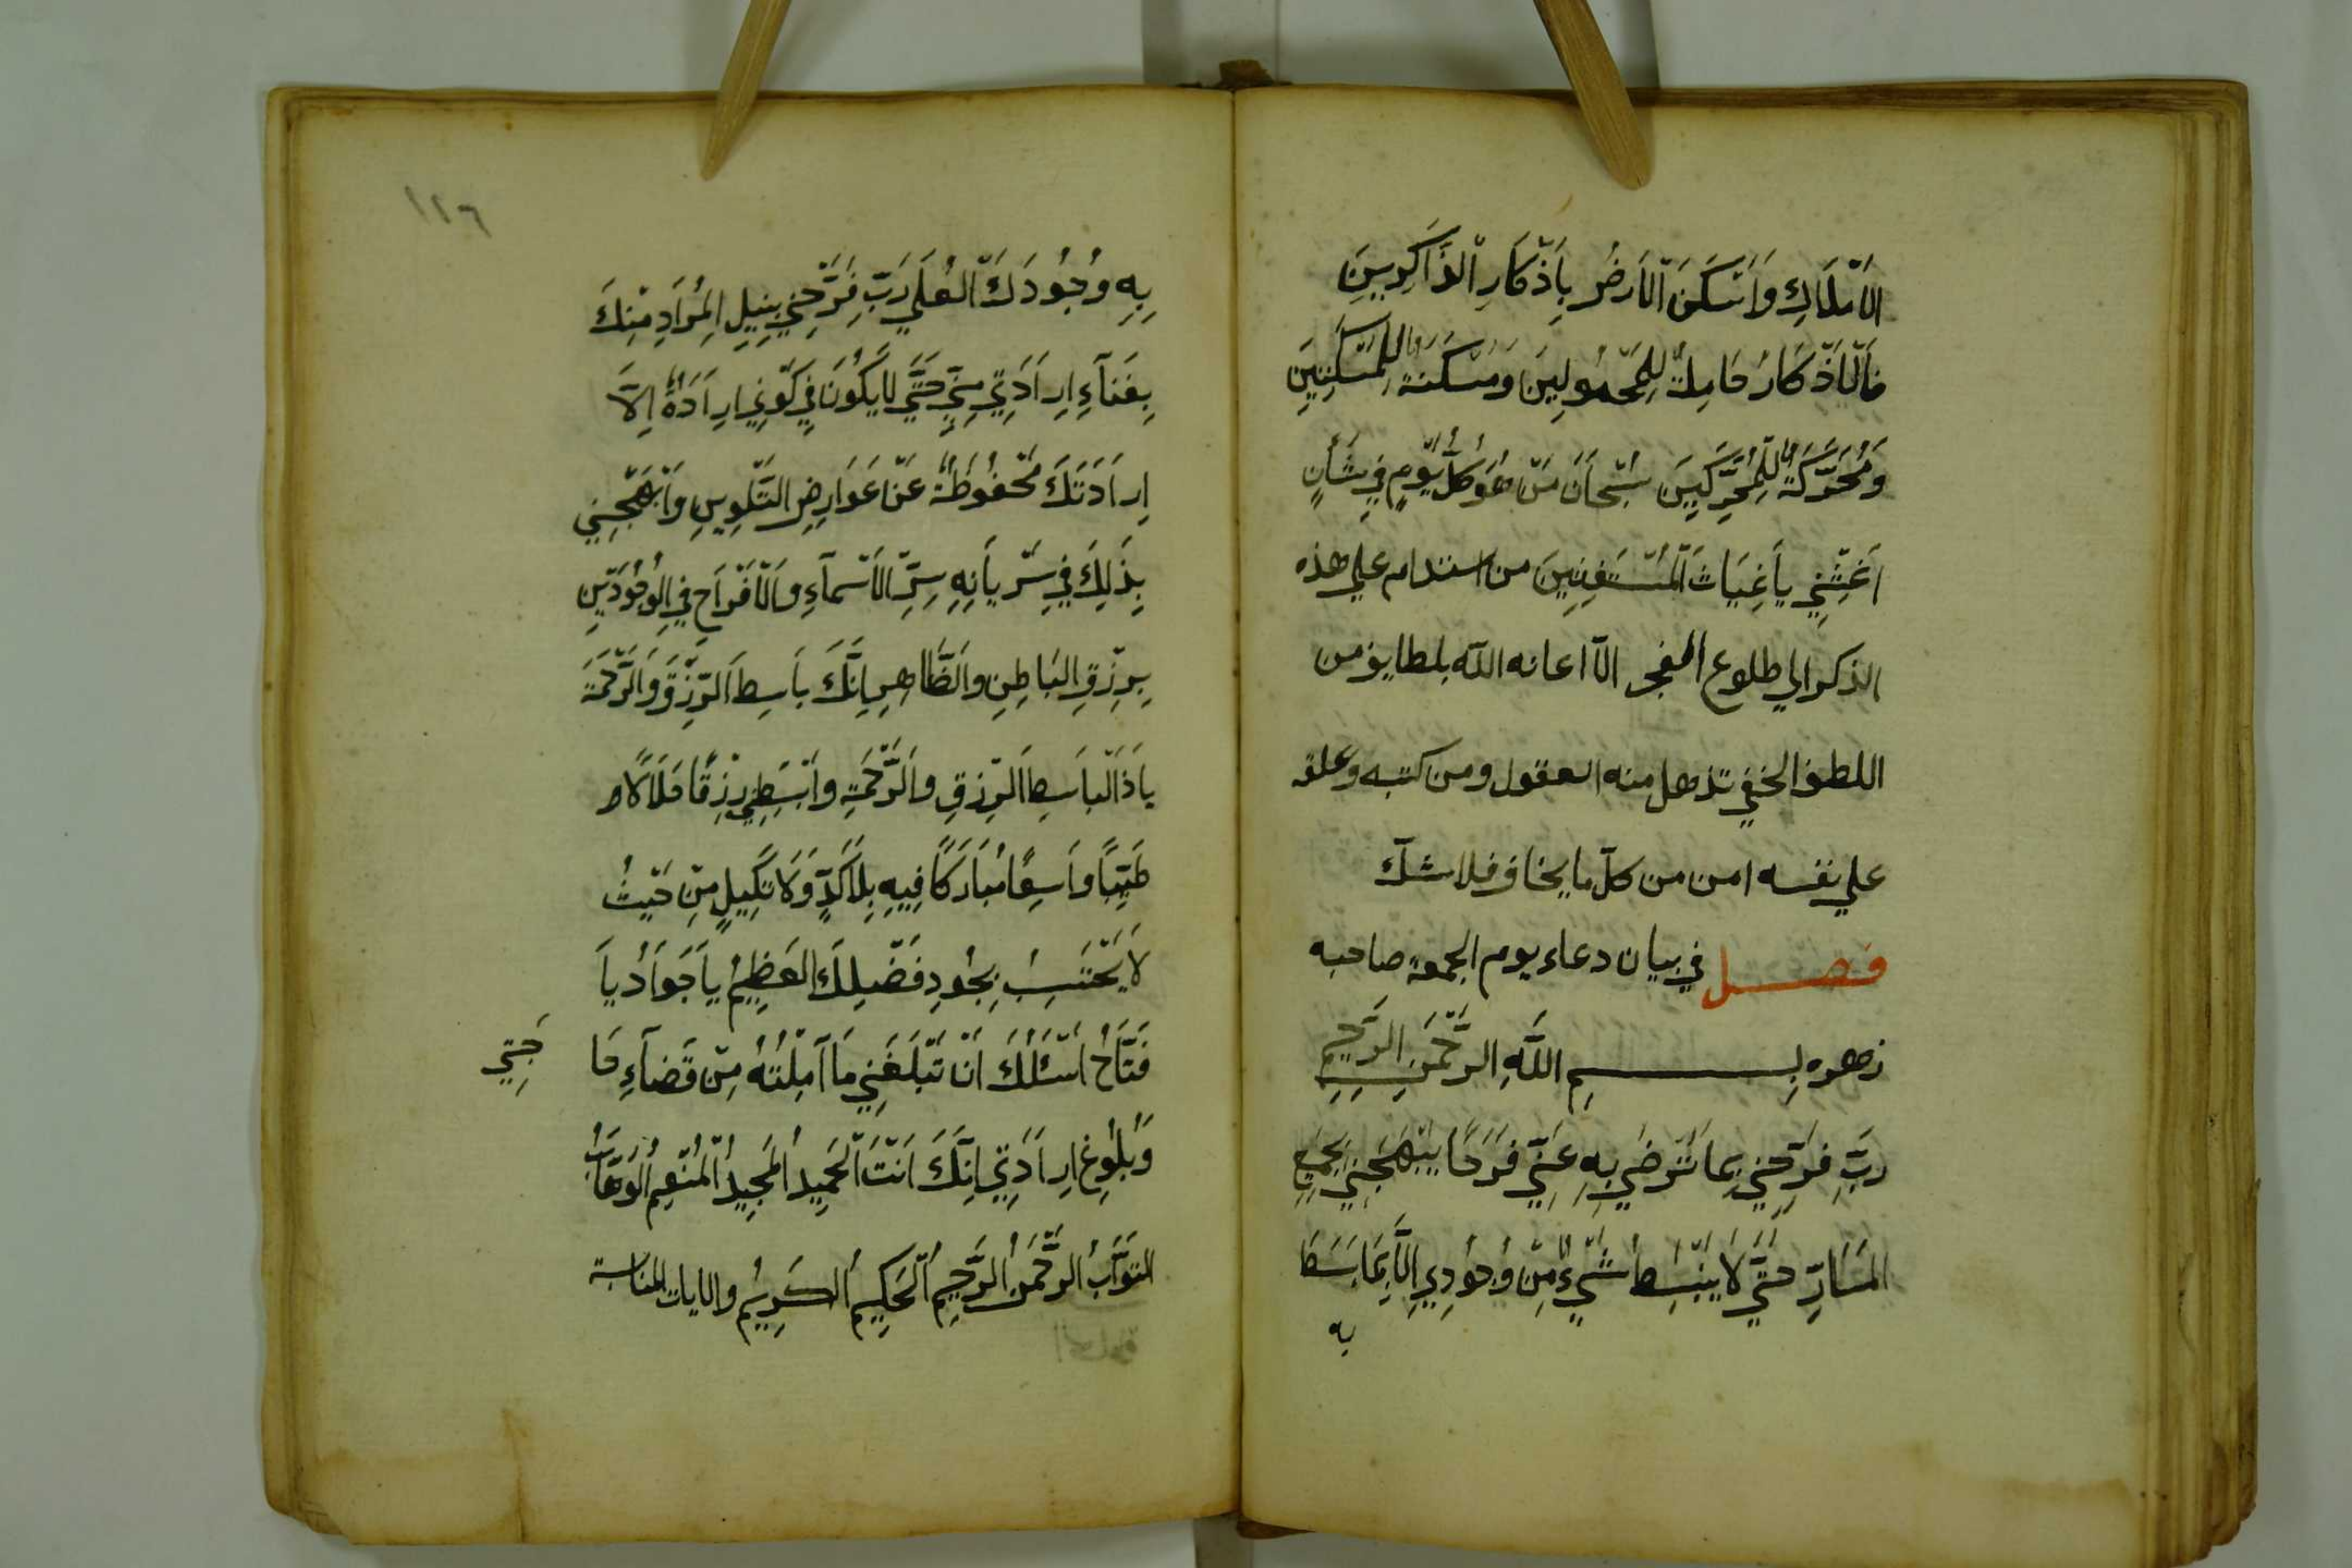 الاَمْلَاكِ وَاَسْكَنَ الْاَرَضُ بِاَذْكَارِ الذَّاكِرِينَ
فَالْاَذْكَارُ حَامِلَةٌ لِلْمَحْمُولِينَ وَمَسْكَنَةٌ لِلْمَسْكَنِينَ
وَمُحَرِّكَةٌ لِلْمُحَرِّكِينَ سُبْحَانَ مَنْ هُوَ كُلَّ يَوْمٍ فِي شَأْنٍ
اَغِثْنِي يَا غِيَاثَ الْمُسْتَغِثِينَ من استدام علي هذه
الذكر الي طلوع الفجر الّا اعانه اللّه بلطايف من
اللطف الخفي تذهل منه العقول ومن كتبه وعلقه
علي نفسه امن من كلّ ما يخاف فلا شكّ
فصل في بيان دعاء يوم الجمعة صاحبه
زهره بِسْمِ اللّٰهِ الرَّحْمٰنِ الرَّحِيمِ
رَبِّ فَرِّحْنِي بِمَا تَرْضَي بِهِ عَنِّي فَرَحًا يُبْهِجُنِي بِجَمِيعِ
الْمَسَارِّ حَتَّي لَا يَنْبَسِطُ شَيْءٌ مِنْ وُجُودِي اِلَّا بِمَا بَسَطَ
به
١٢٦
بِهِ وُجُودَكَ الْعُلَي رَبِّ فَرِّحْنِي بِنِيلِ الْمُرَادِ مِنْكَ
بِفَنَآءِ اِرَادَتِي مِنِّي حَتَّي لَا يَكُونَ فِي كَوْنِي اِرَادَةٌ اِلَّا
اِرَادَتَكَ مَحْفُوظَةٌ عَنْ عَوَارِضِ التَّلْوِينِ وَاَبْهِجْنِي
بِذَلِكَ فِي سَرْيَانِهِ سِرِّ الْاَسْمَآءِ وَالْاَفْرَاحِ فِي الْوُجُودَيْنِ
بِرِزْقِ الْبَاطِنِ وَالظَّاهِرِ اِنَّكَ بَاسِطَ الرِّزْقَ وَالرَّحْمَةَ
يَا ذَا الْبَاسِطَ الرِّزْقِ وَالرَّحْمَةِ وَابْسِطْنِي رِزْقًا حَلَالًا
طَيِّبًا وَاسِعًا مُبَارَكًا فِيهِ بِلَا كَدٍّ وَلَا تَكِيلٍ مِنْ حَيْثُ
لَا يَحْتَسِبُ بِجُودِ فَضْلِكَ الْعَظِيمُ يَا جَوَادُ يَا
فَتَّاحُ اَسْئَلُكَ اَنْ تَبْلَغَنِي مَا آمِلْتُهُ مِنْ قَضَآءِ حَا
جَتِي
وَبُلُوغِ اِرَادَتِي اِنَّكَ اَنْتَ الْحَمِيدُ الْمَجِيدُ الْمُنْعِمُ الْوَهَّابُ
التَّوَّابُ الرَّحْمٰنُ الرَّحِيمُ الْحَكِيمُ الْكَرِيمُ والايات المناسبة